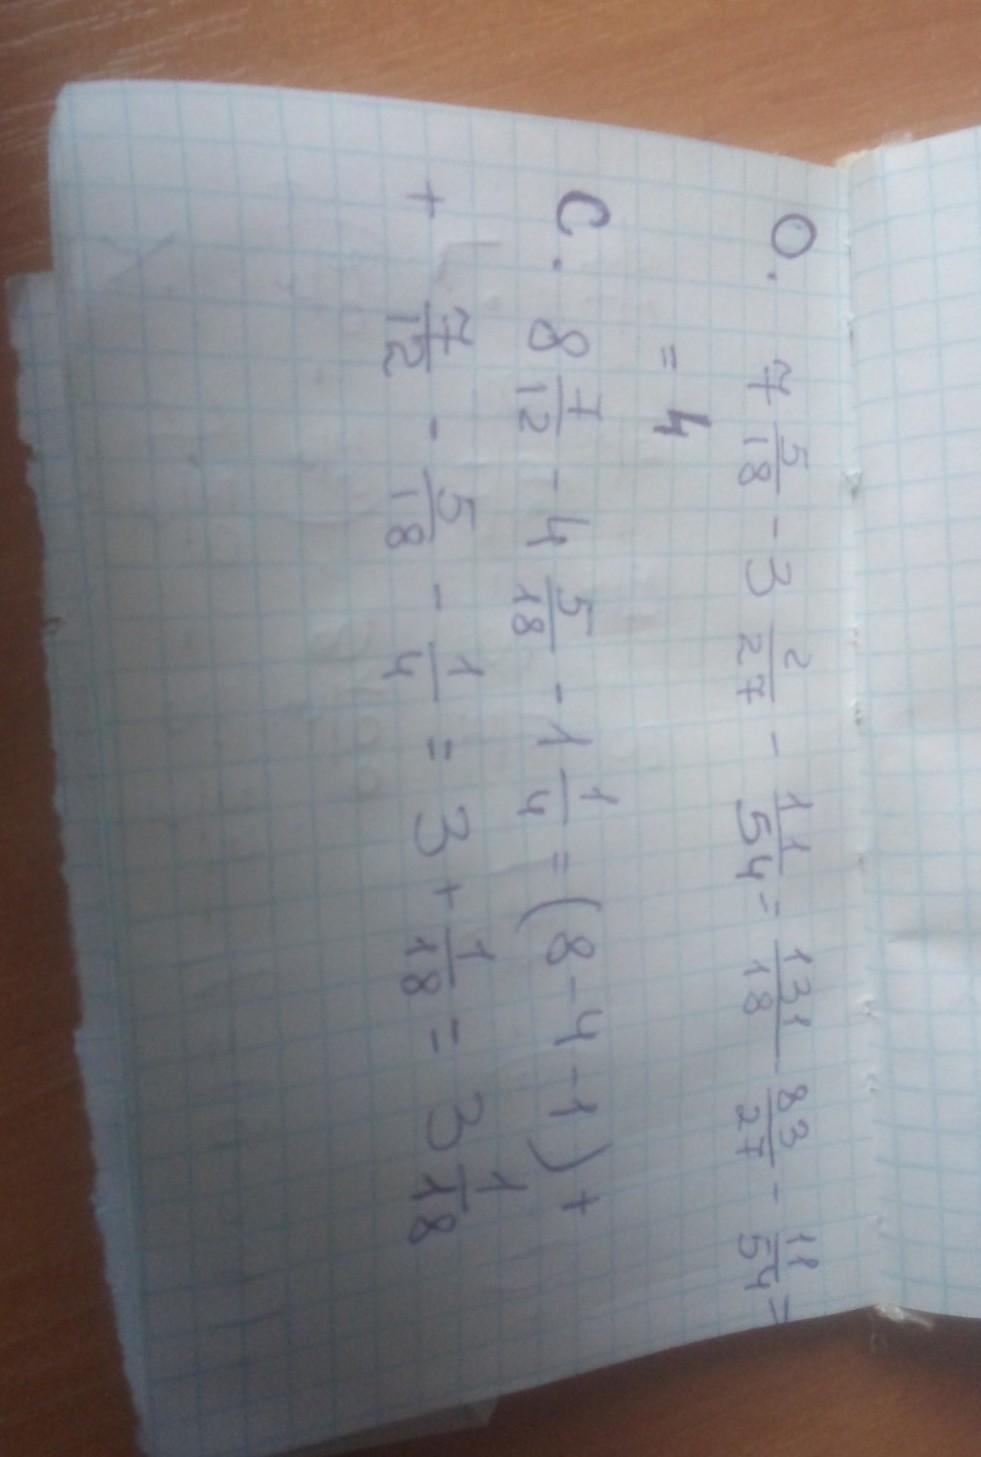 О. 7 5/18 - 3 2/27 - 11/54 = 131/18 - 83/27 - 11/54 =
= 4
С. 8 7/12 - 4 5/18 - 1 1/4 = (8 - 4 - 1) +
+ 7/12 - 5/18 - 1/4 = 3 + 1/18 = 3 1/18